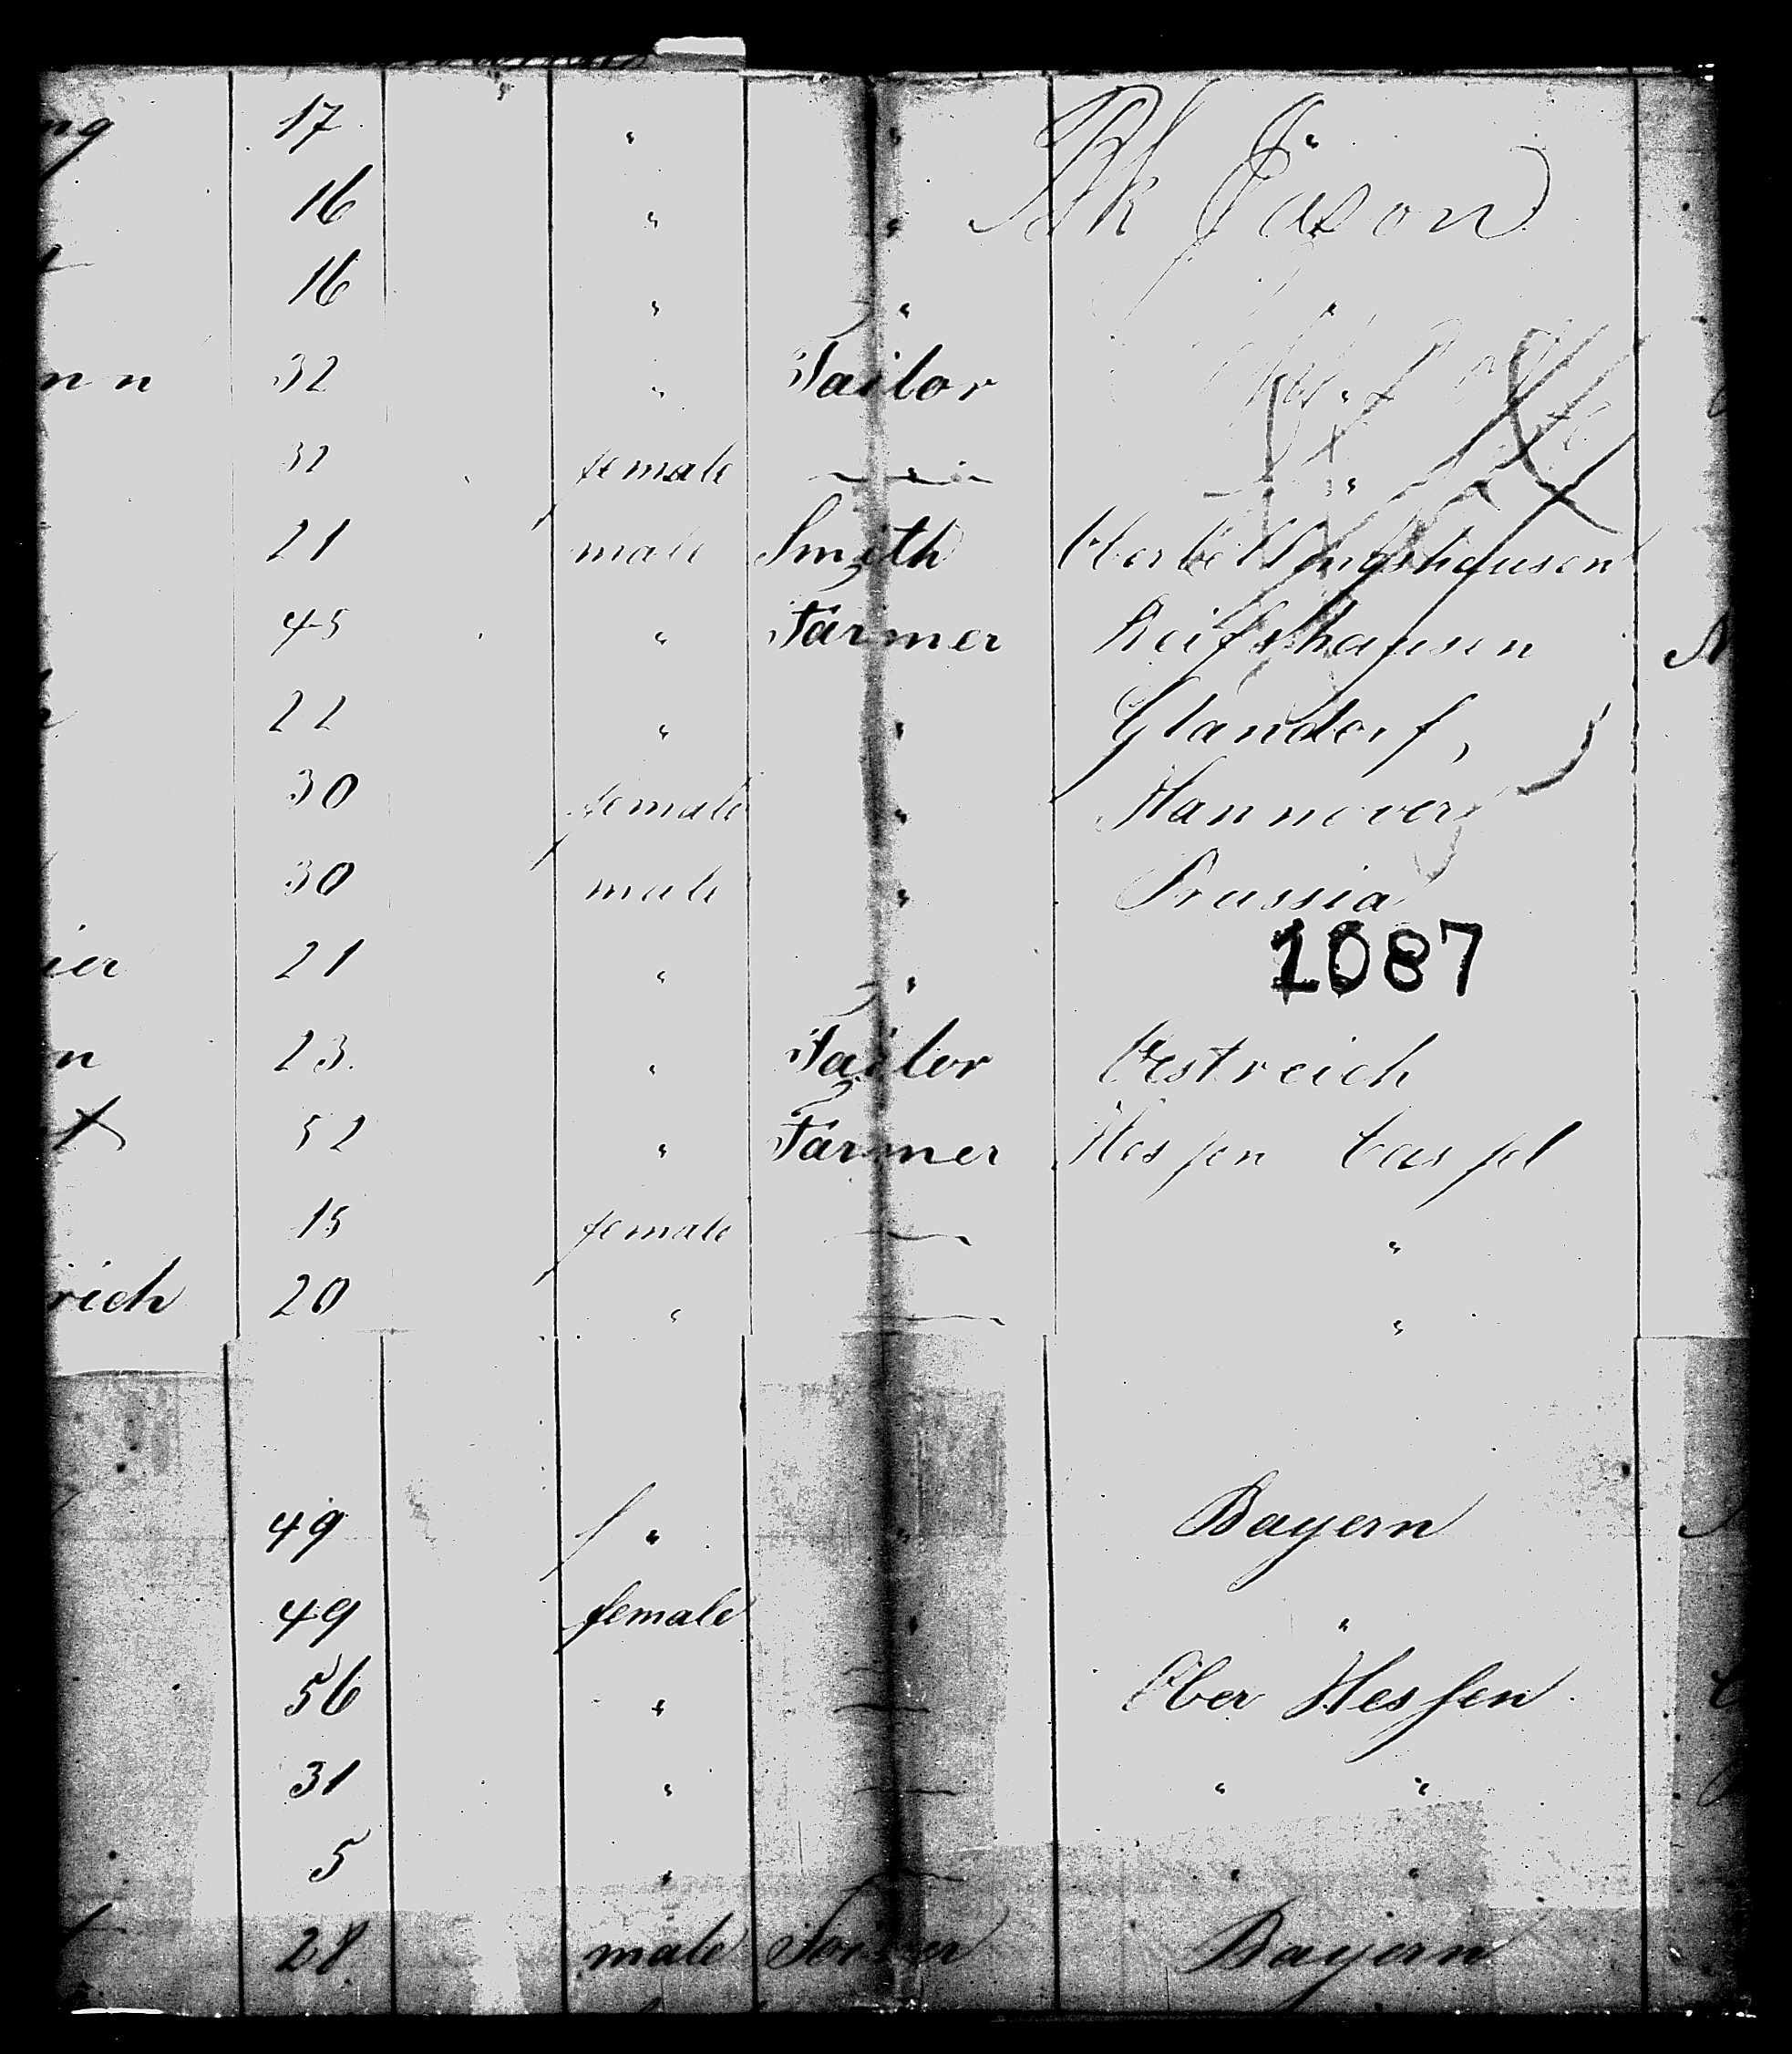 ng 17 " " "
Bk Jason
16 " "
16 " " "
nn 32 " Tailor "
32 female "
21 male Smith
45 " Farmer Reifshausen
22 " " Glandorf,
30 female " Hannover
30 male " Prussia
1087
ier 21 " "
n 23. " Tailor Oestreich
t 52 " Farmer Hessen Cassel
15 female — "
rich 20 " — "
49 " " Bayern
49 female " "
56 " — Ober Hessen
31 " — " "
5 " — " "
28 male Farmer Bayern